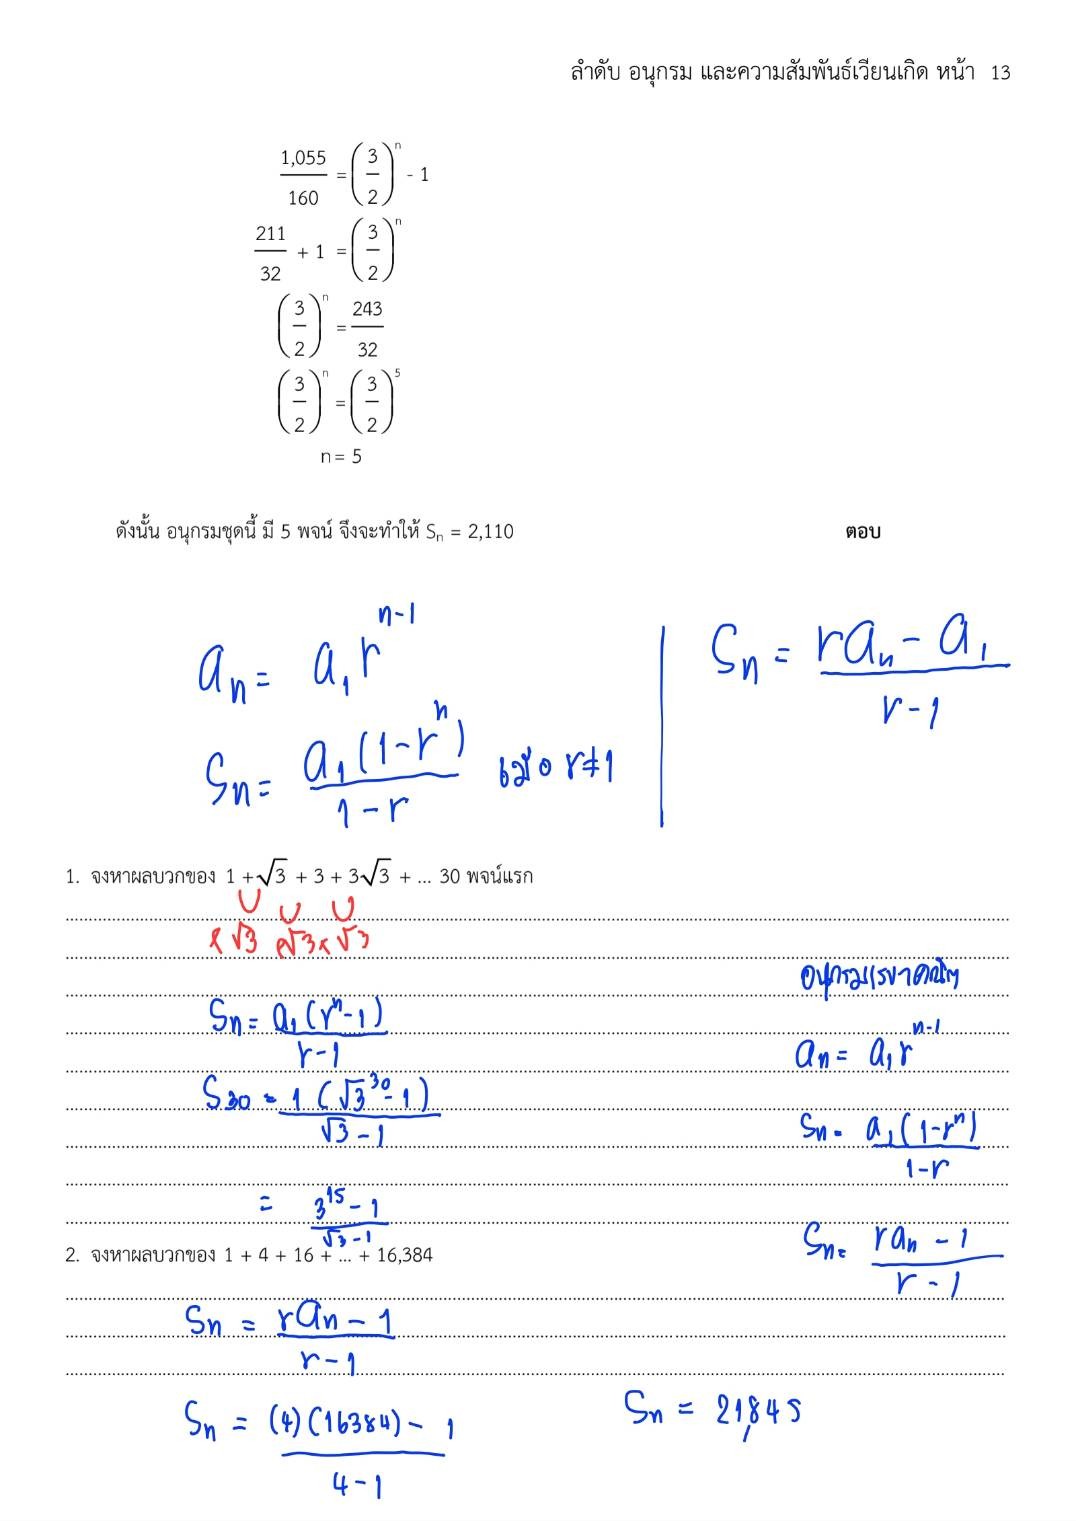 ลำดับ อนุกรม และความสัมพันธ์เวียนเกิด หน้า 13
1,055/160 = (3/2)^n - 1
211/32 + 1 = (3/2)^n
(3/2)^n = 243/32
(3/2)^n = (3/2)^5
n = 5
ดังนั้น อนุกรมชุดนี้ มี 5 พจน์ จึงจะทำให้ Sₙ = 2,110 ตอบ
aₙ = a₁r^(n-1)
Sₙ = a₁(1-r^n)/(1-r) เมื่อ r≠1
Sₙ = (raₙ - a₁)/(r-1)
1. จงหาผลบวกของ 1 + √3 + 3 + 3√3 + ... 30 พจน์แรก
×√3 ×√3 ×√3
Sₙ = a₁(r^n-1)/(r-1)
S₃₀ = 1(√3^30-1)/(√3-1)
= (3^15-1)/(√3-1)
อนุกรมเรขาคณิต
aₙ = a₁r^(n-1)
Sₙ = a₁(1-r^n)/(1-r)
Sₙ = (raₙ - 1)/(r-1)
2. จงหาผลบวกของ 1 + 4 + 16 + ... + 16,384
Sₙ = (raₙ - 1)/(r-1)
Sₙ = ((4)(16384) - 1)/(4-1)
Sₙ = 21,845